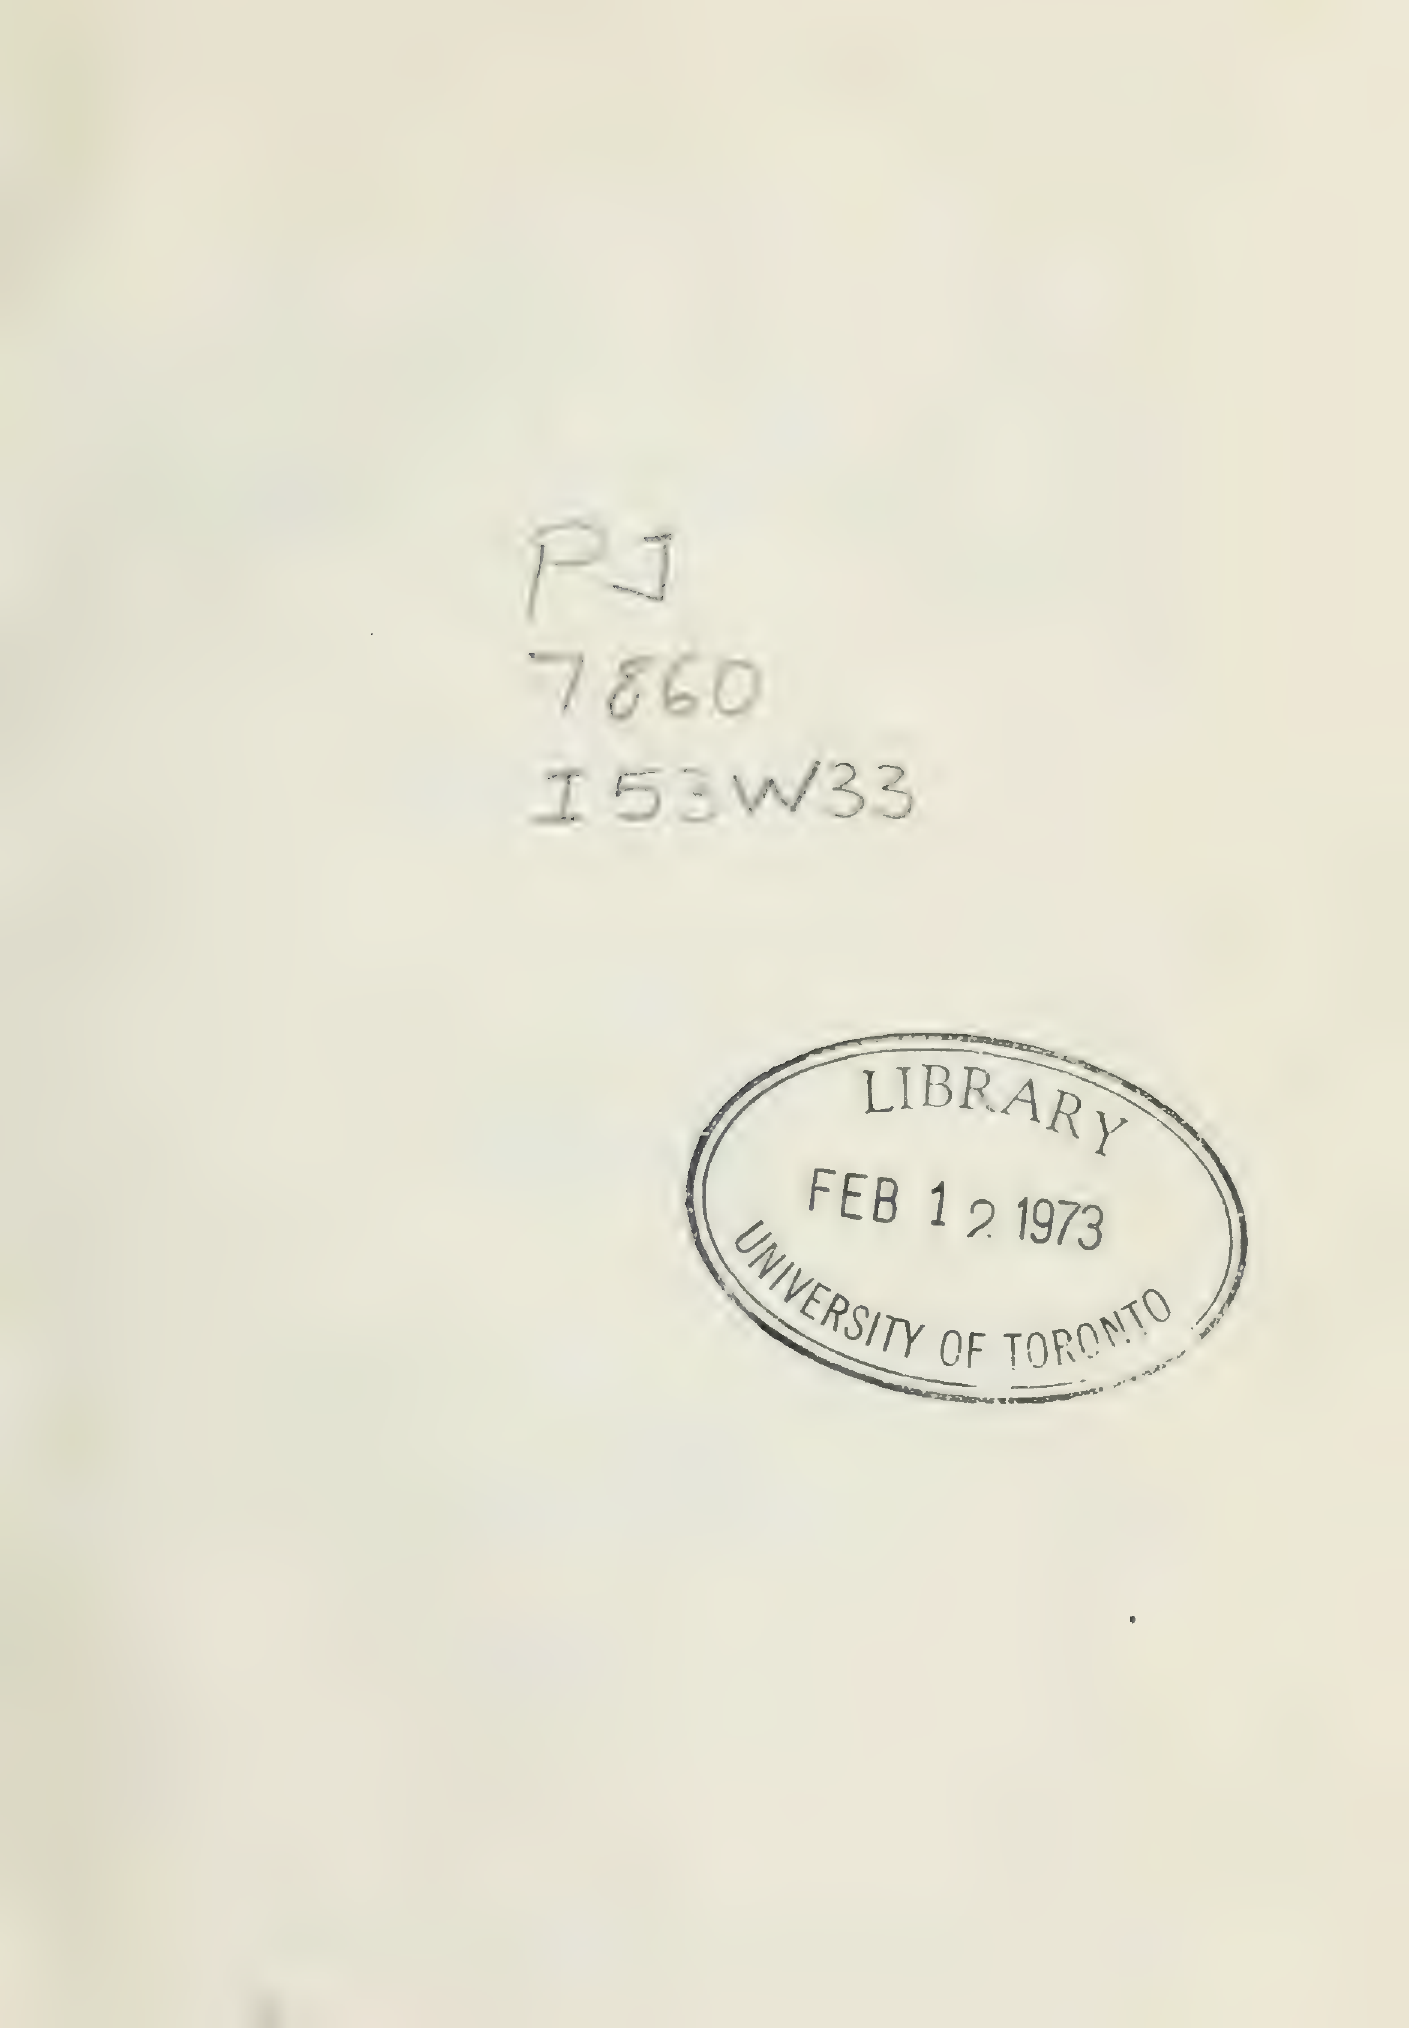 PJ
7860
I53W33
LIBRARY
FEB 12 1973
UNIVERSITY OF TORONTO